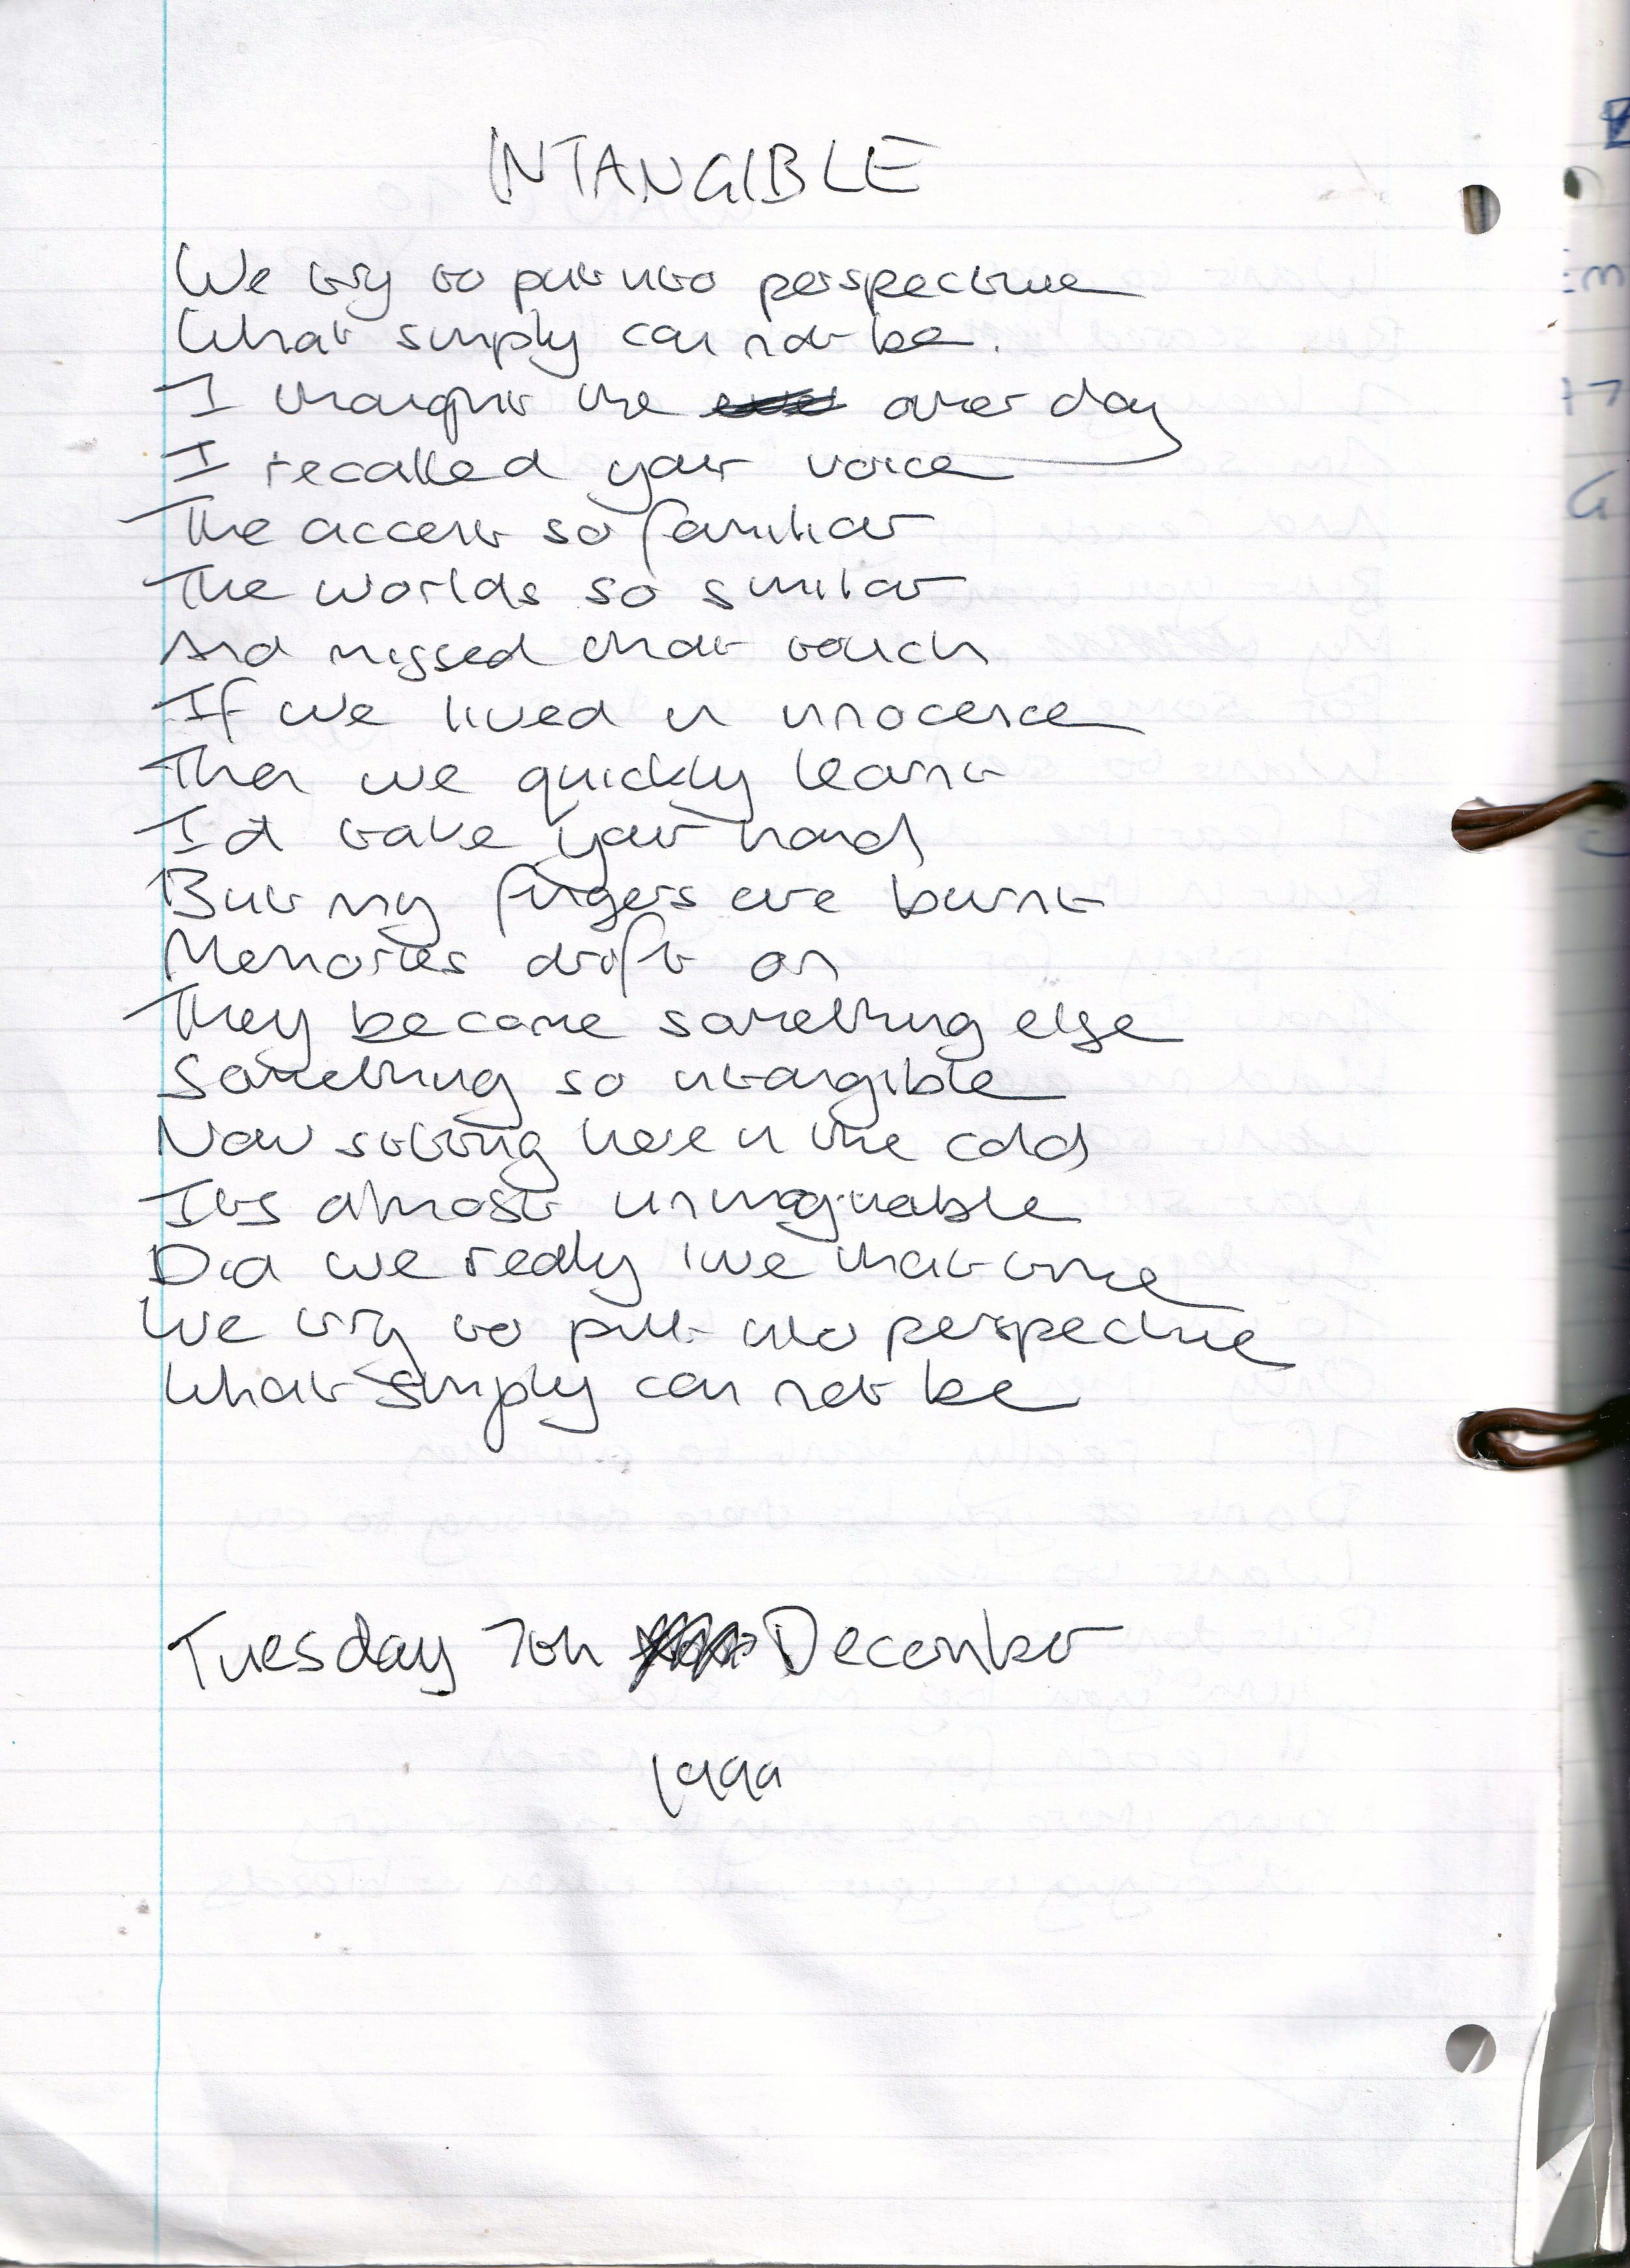 INTANGIBLE
We try to put into perspective
What simply can not be.
I thought the other day
I recalled your voice
The accent so familiar
The worlds so similar
And missed that touch
If we lived in innocence
Then we quickly learnt
I'd take your hand
But my fingers are burnt
Memories drift on
They become something else
Something so intangible
Now sitting here in the cold
Its almost unimaginable
Did we really live that time
We try to put into perspective
What simply can not be
Tuesday 7th December
1999